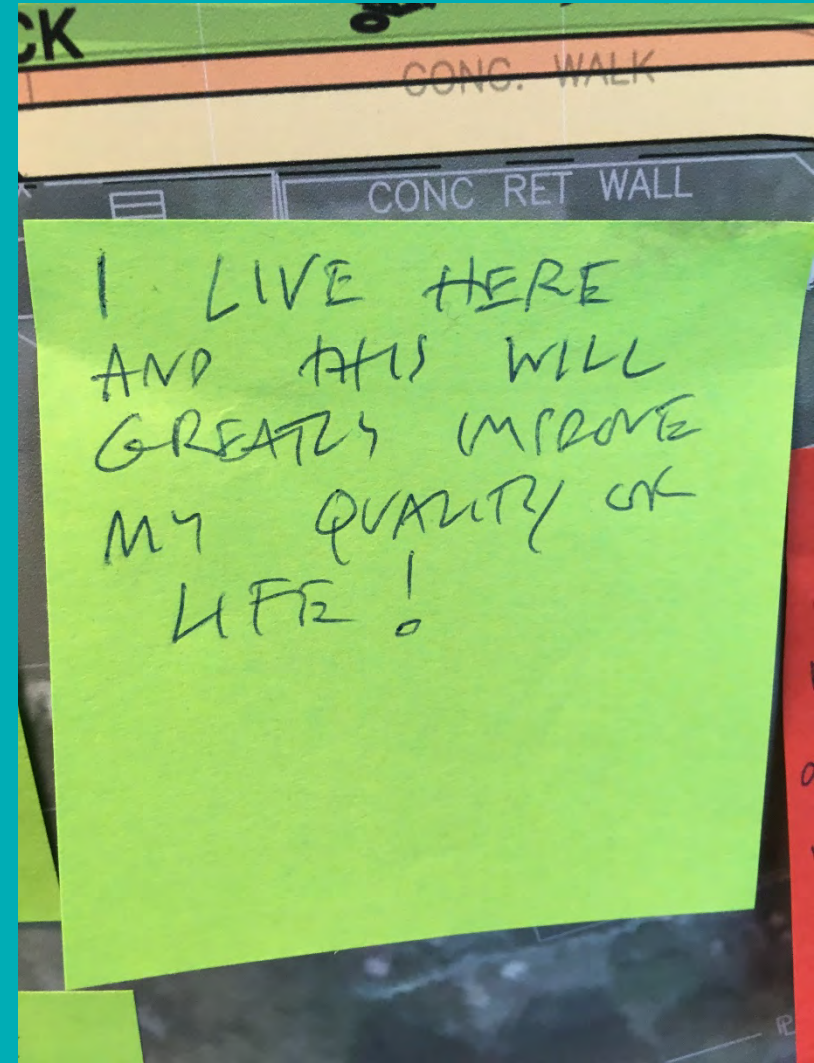 CK
CONC. WALK
CONC RET WALL
I LIVE HERE
AND THIS WILL
GREATLY IMPROVE
MY QUALITY OF
LIFE!